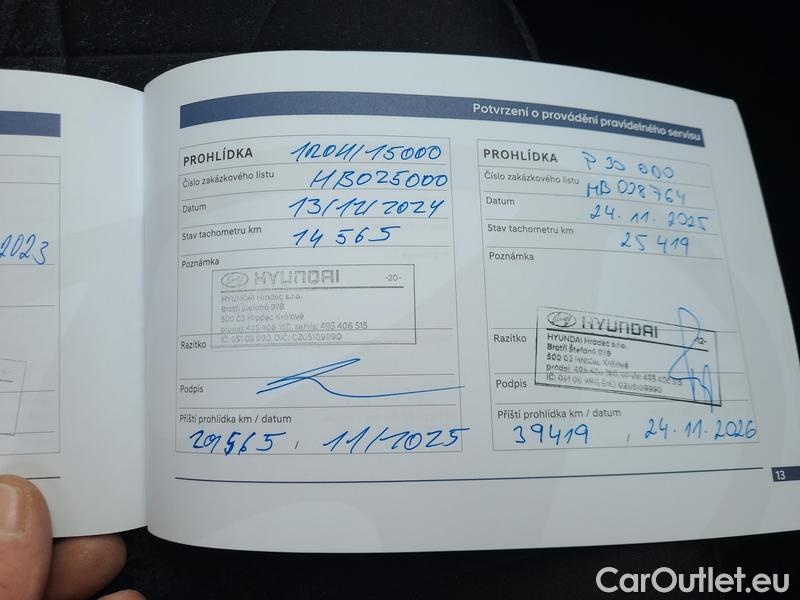 2023
Potvrzení o provádění pravidelného servisu
PROHLÍDKA 1ROK/15000
Číslo zakázkového listu HB025000
Datum 13/12/2024
Stav tachometru km 14 565
Poznámka
HYUNDAI -20-
HYUNDAI Hradec s.r.o.
Bratří Štefanů 978
500 03 Hradec Králové
prodej: 495 406 160, servis: 495 406 515
IČ: 051 09 990, DIČ: CZ05109990
Razítko
Podpis
Příští prohlídka km / datum
29565 , 11/2025
PROHLÍDKA P 30 000
Číslo zakázkového listu HB 028764
Datum 24.11.2025
Stav tachometru km 25 419
Poznámka
HYUNDAI -12-
HYUNDAI Hradec s.r.o.
Bratří Štefanů 978
500 03 Hradec Králové
prodej: 495 406 160, servis: 495 406 515
IČ: 051 09 990, DIČ: CZ05109990
Razítko
Podpis
Příští prohlídka km / datum
39419 , 24.11.2026
13
CarOutlet.eu